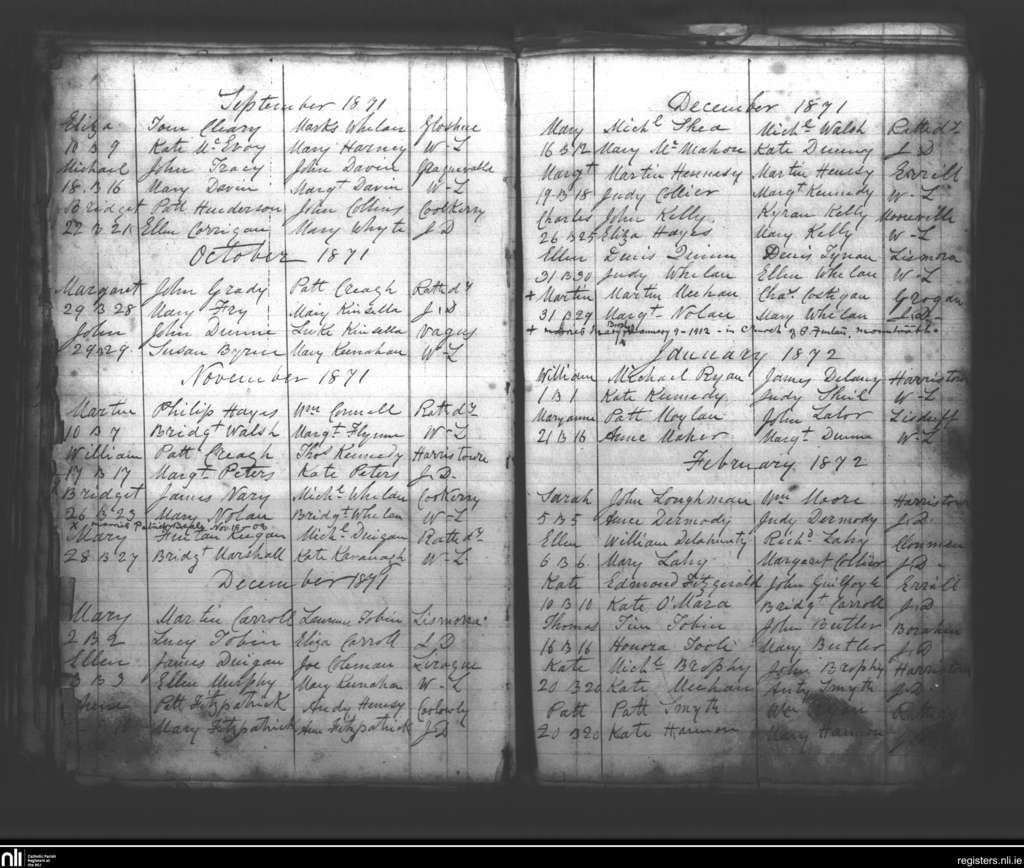 September 1871
Eliza Tom Cleary Marks Whelan Gloshne
10 B 9 Kate McEvoy Mary Harney W-L
Michael John Tracy John Davin Graguevalla
18 B 16 Mary Davin Margt Davin W-L
Bridget Patt Henderson John Collins Coolkerry
22 B 21 Ellen Corrigan Mary Whyte J.D
October 1871
Margaret John Grady Patt Creagh Rathd
29 B 28 Mary Fry Mary Kinsella J.D
John John Dunne Luke Kinsella
29 B 29 Susan Byrne Mary Keenahan W-L
November 1871
Martin Philip Hayes Wm Connell Rathd
10 B 7 Bridgt Walsh Margt Flynne W-L
William Patt Creagh Thos Kennedy Harristown
17 B 17 Margt Peters Kate Peters J.D.
Bridget James Nary Michl Whelan Coolkerry
26 B 23 Mary Nolan Bridgt Whelan W-L
x married Patrick Nov 18-03
Mary Fintan Keegan Michl Duigan Rathd
28 B 27 Bridgt Marshall Kate Kavanagh W-L
December 1871
Mary Martin Carroll Laurence Tobin Lismore
2 B 2 Lucy Tobin Eliza Carroll J.D
Ellen James Duigan Joe Coleman
3 B 3 Ellen Murphy Mary Keenahan W-L
Anne Patt Fitzpatrick Andy Henesy Coolowly
Mary Fitzpatrick Anne Fitzpatrick J.D
December 1871
Mary Michl Shea Michl Walsh Rathd
16 B 12 Mary McMahon Kate Deming J.D
Margt Martin Hennesy Martin Henesy Errill
19 B 18 Judy Collier Margt Kennedy W-L
Charles John Kelly Kyran Kelly Moneville
26 B 25 Eliza Hayes Mary Kelly W-L
Ellen Denis Dunne Denis Tynan Lismora
31 B 30 Judy Whelan Ellen Whelan W-L
+ Martin Martin Meehan Chas Costigan Grogan
31 B 29 Margt Nolan Mary Whelan J.D.
+ married Mary January 9-1912 - in Church of S. Fintan, Mountrath.
January 1872
William Michael Ryan James Delany Harristown
1 B 1 Kate Kennedy Judy Shiel W-L
Maryanne Patt Moylan John Lalor Lisduff
21 B 16 Anne Maher Margt Dunne W-L
February 1872
Sarah John Loughman Wm Moore Harristown
5 B 5 Anne Dermody Judy Dermody J.D
Ellen William Delahunty Richd Lahy Clonmeen
6 B 6 Mary Lahy Margaret Collier J.D
Kate Edmond Fitzgerald John Guilfoyle Errill
10 B 10 Kate O'Mara Bridgt Carroll J.D
Thomas Tim Tobin John Butler
16 B 16 Honora Tooli Mary Butler J.D
Kate Michl Brophy John Brophy Harristown
20 B 20 Kate Meehan Anty Smyth J.D
Patt Patt Smyth Wm Rathd
20 B 20 Kate Hannon Mary Hannon
nli Catholic Parish
Registers at
the NLI
registers.nli.ie